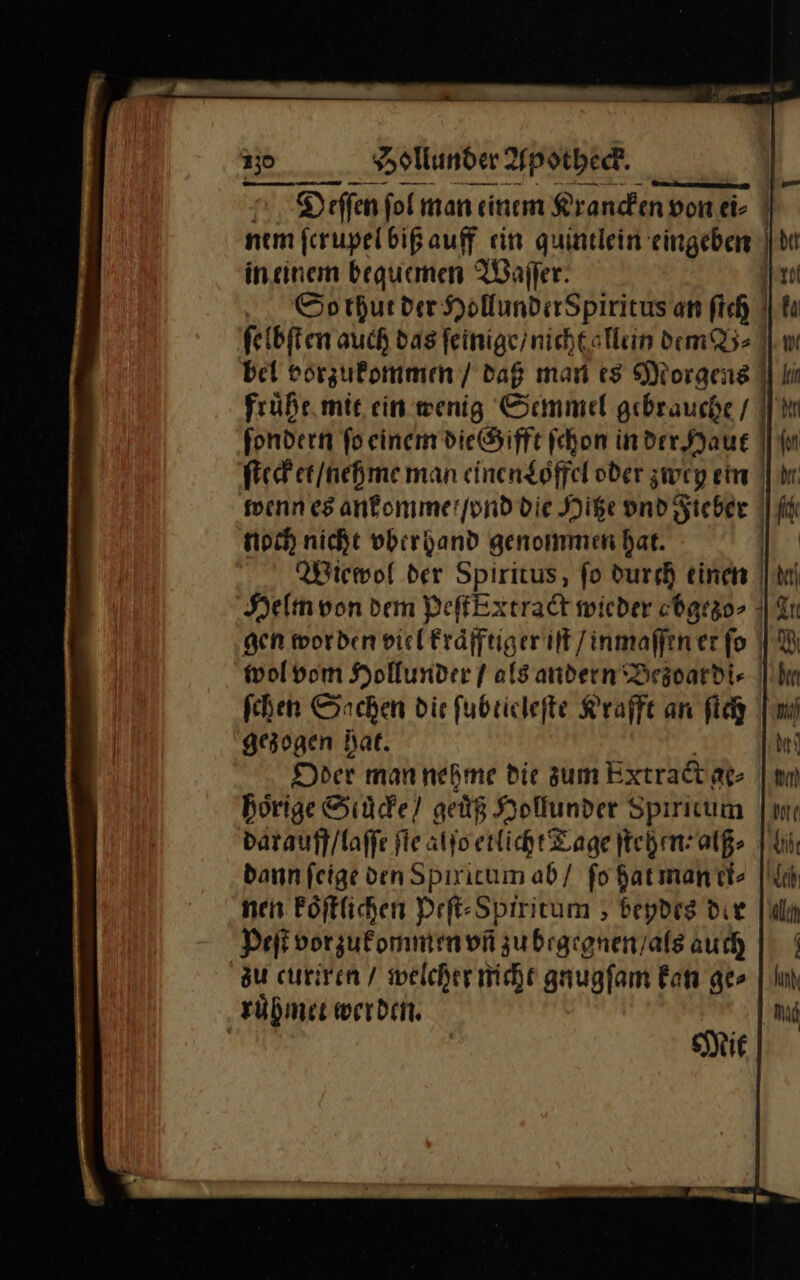 130 Hollunder Apotheck.
Deſſen ſol man einem Krancken von ei⸗
nem ſcrupel biß auff ein quintlein eingeben
in einem bequemen Waſſer.
So thut der HollunderSpiritus an ſich
ſelbſten auch das ſeinige/nicht allein dem V⸗
bel vorzukommen / daß man es Morgens
frühe mit ein wenig Semmel gebrauche /
ſondern ſo einem die Gifft ſchon in der Haut
ſtecket/nehme man einen Löffel oder zwey ein
wenn es ankommet/vnd die Hitze vnd Fieber
noch nicht vberhand genommen hat.
Wiewol der Spiritus, ſo durch einen
Helm von dem PeſtExtract wieder abgezo⸗
gen worden viel kräfftiger iſt / inmaſſen er ſo
wol vom Hollunder / als andern Bezoardi⸗
ſchen Sachen die ſubtieleſte Krafft an ſich
gezogen hat.
Oder man nehme die zum Extract ge⸗
hörige Stücke/ geüß Hollunder Spiritum
darauff/laſſe ſie alſo etliche Tage ſtehen: alß⸗
dann ſeige den Spiritum ab / ſo hat man ei⸗
nen köſtlichen Peſt⸗Spiritum , beydes der
Peſt vorzukommen vñ zu begegnen/als auch
zu curiren / welcher nicht gnugſam kan ge⸗
rühmet werden.
Mit